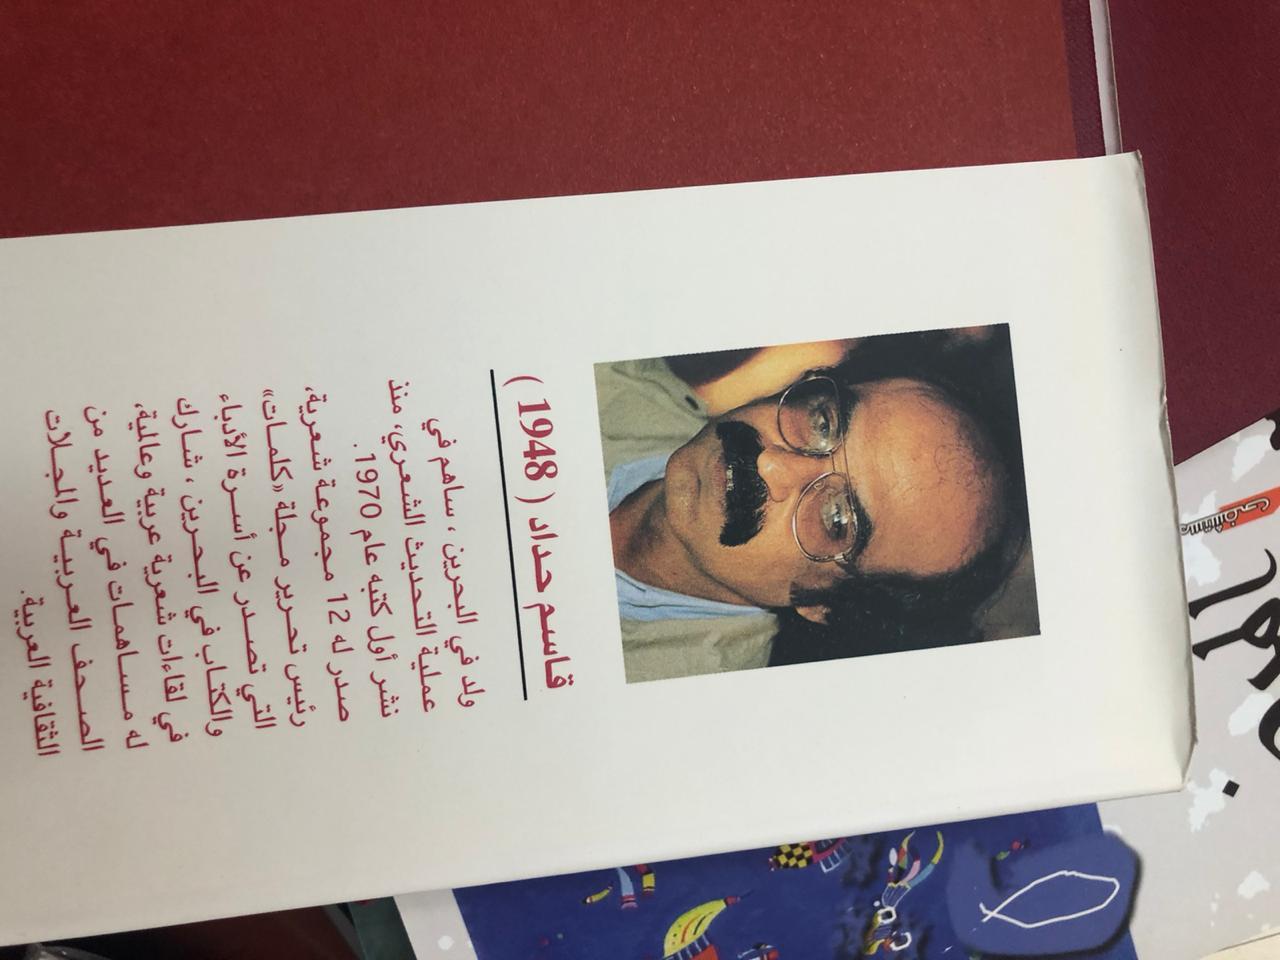 قاسم حداد ( 1948 )
ولد في البحرين ، ساهم في
عملية التحديث الشعري، منذ
نشر أول كتبه عام 1970 .
صدر له 12 مجموعة شعرية،
رئيس تحرير مجلة «كلمات»
التي تصدر عن أسرة الأدباء
والكتاب في البحرين ، شارك
في لقاءات شعرية عربية وعالمية،
له مساهمات في العديد من
الصحف العربية والمجلات
الثقافية العربية.